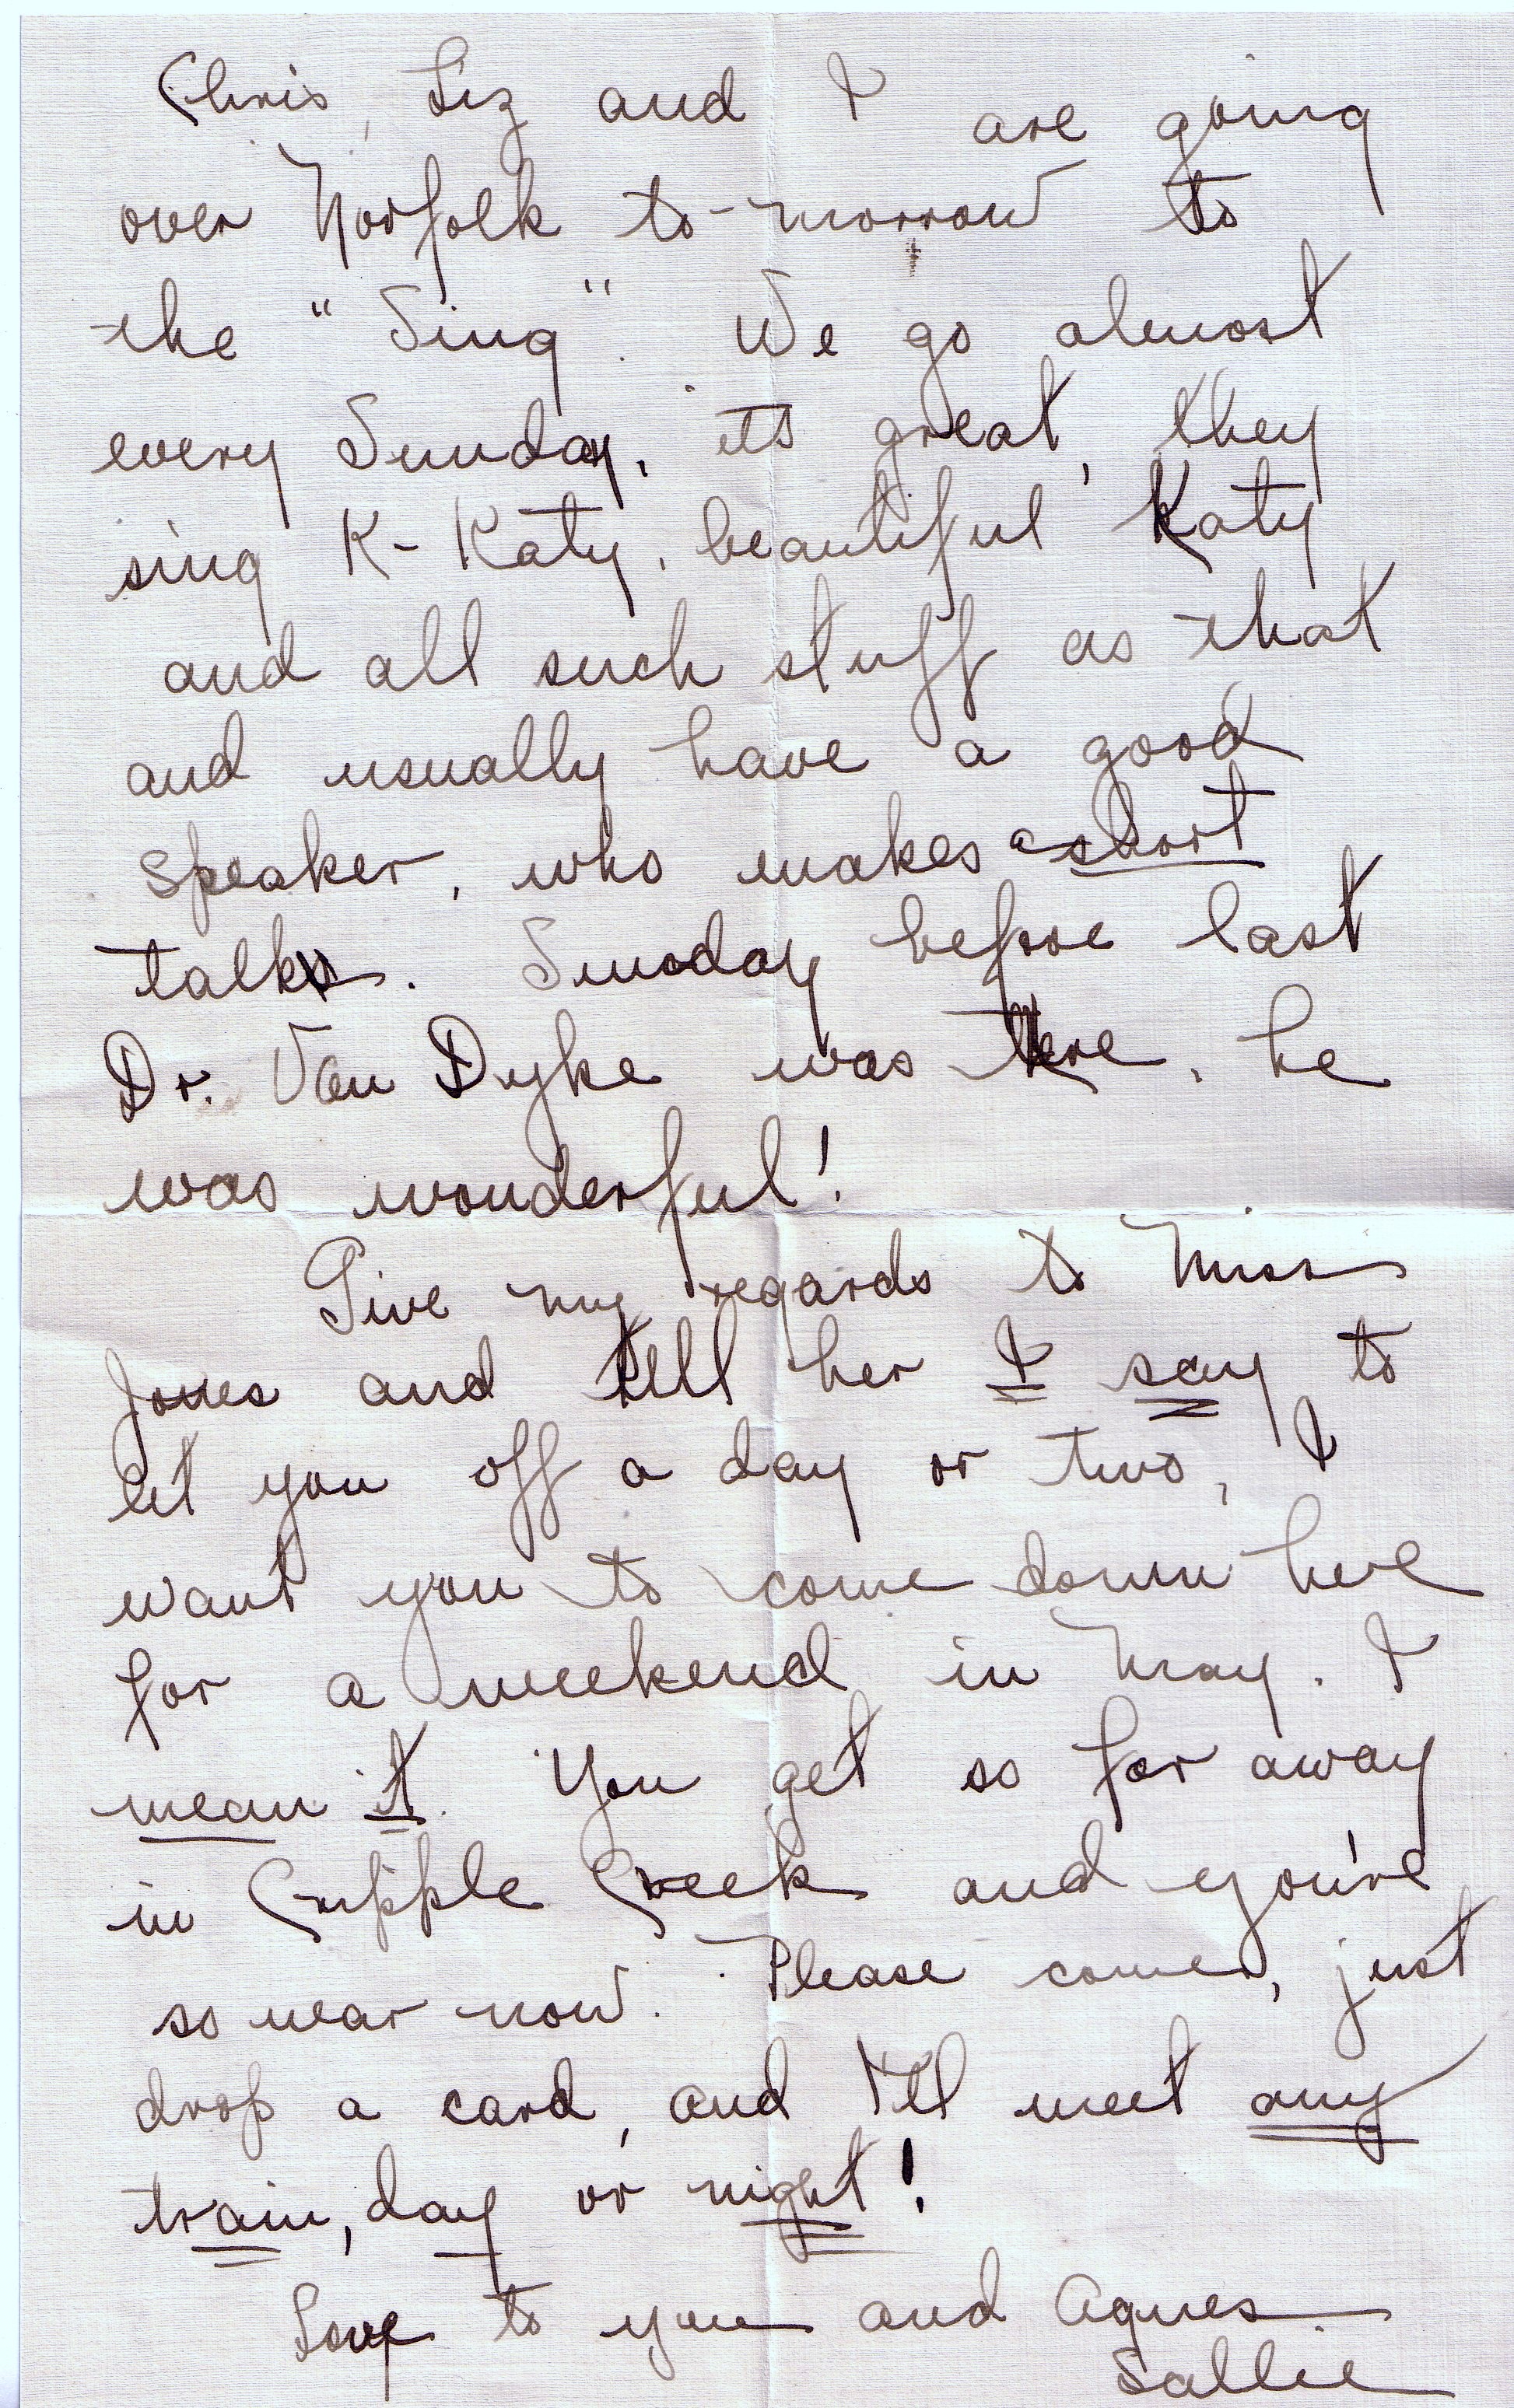 Chris, Liz and I are going
over Norfolk to-morrow to
the "Sing". We go almost
every Sunday, its great, they
sing K-Katy, beautiful Katy
and all such stuff as that
and usually have a good
speaker, who makes a short
talk. Sunday before last
Dr. Van Dyke was there, he
was wonderful!
Give my regards to Miss
Jones and tell her I say to
let you off a day or two, I
want you to come down here
for a weekend in May. I
mean it. You get so far away
in Cripple Creek and you're
so near now. Please come, just
drop a card, and I'll meet any
train, day or night!
Love to you and Agnes
Sallie